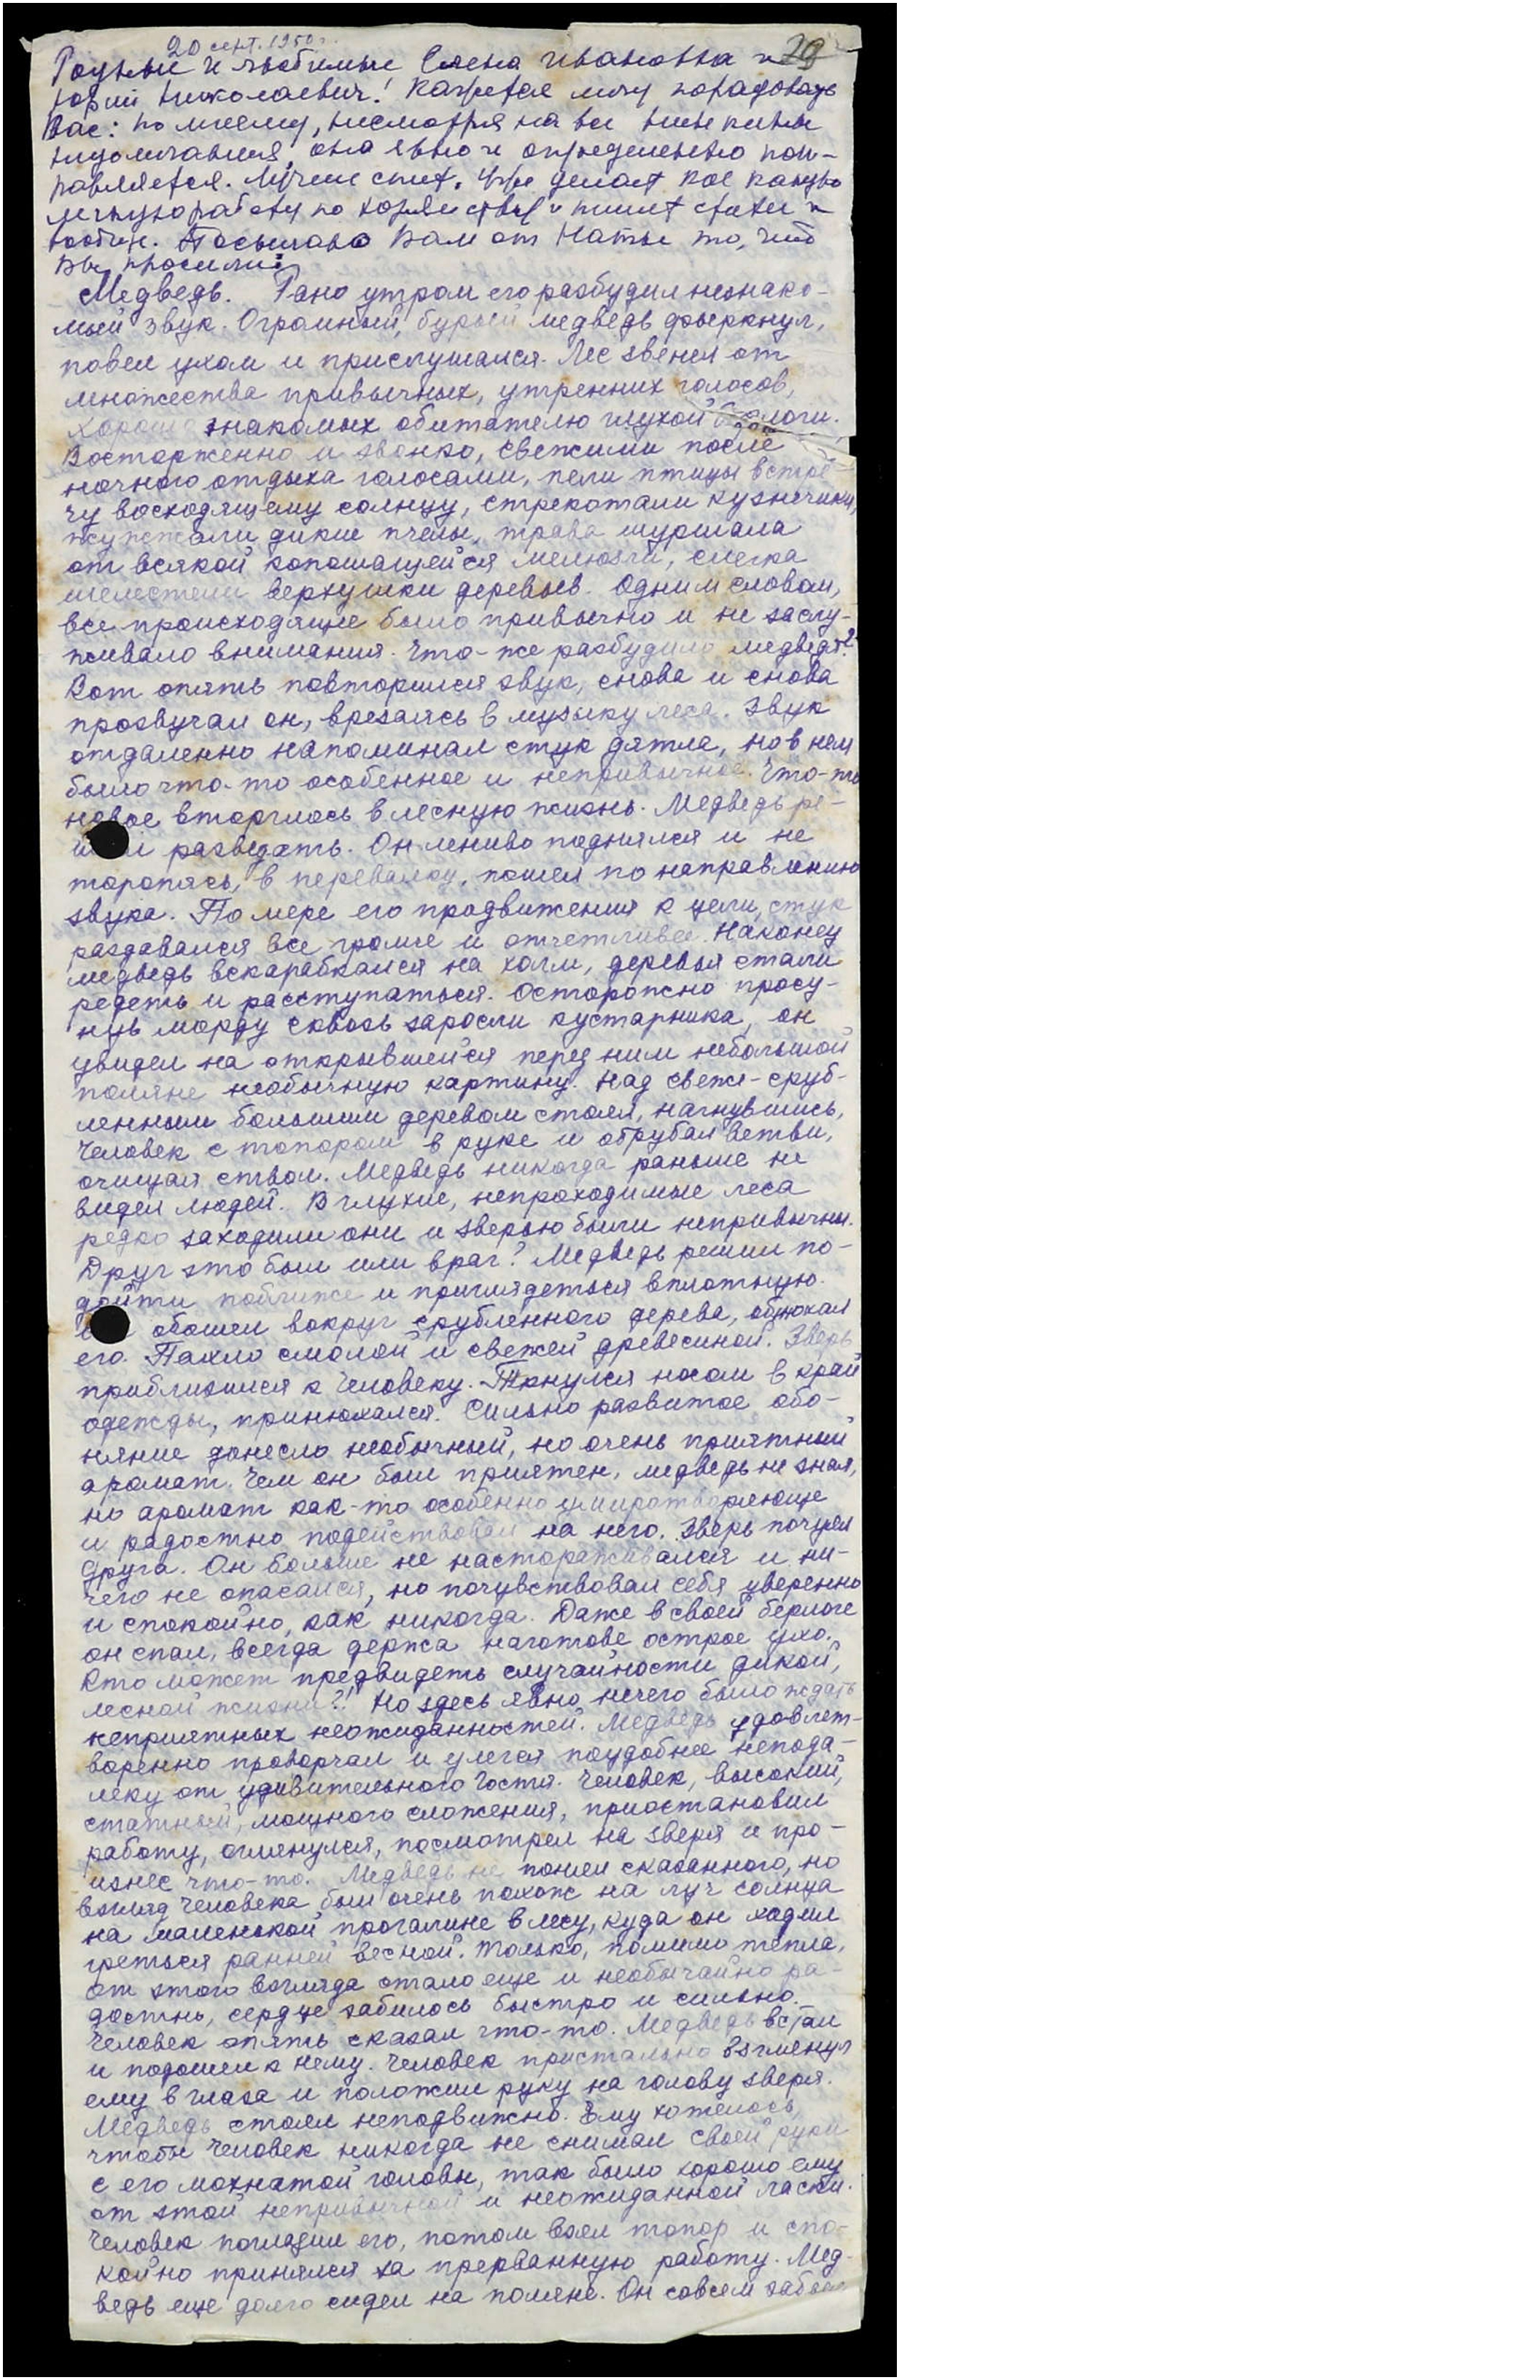 20 сент. 1950 г.
29
Родные и любимые Елена Ивановна и
Юрий Николаевич! Кажется могу порадовать
Вас: по моему, несмотря на все
недомагания, она явно и определенно поп-
равляется. Лучше спит. Уже делает кое какую
легкую работу по хозяйству и пишет стихи и
вообще. Посылаю Вам от Наты то, что
Вы просили:
Медведь. Рано утром его разбудил незнако-
мый звук. Огромный, бурый медведь фыркнул,
повел ухом и прислушался. Лес звенел от
множества привычных, утренних голосов,
хорошо знакомых обитателю глухой берлоги.
Восторженно и звонко, свежими после
ночного отдыха голосами, пели птицы встре-
чу восходящему солнцу, стрекотали кузнечики,
жужжали дикие пчелы, трава шуршала
от всякой копошащейся мелюзги, слегка
шелестели верхушки деревьев. Одним словом,
все происходящее было привычно и не заслу-
живало внимания. Что-же разбудило медведя?
Вот опять повторился звук, снова и снова
прозвучал он, врезаясь в музыку леса. Звук
отдаленно напоминал стук дятла, но в нем
было что-то особенное и непривычное. Что-то
новое вторглось в лесную жизнь. Медведь ре-
шил разведать. Он лениво поднялся и не
торопясь, в перевалку, пошел по направлению
звука. По мере его продвижения к цели, стук
раздавался все громче и отчетливее. Наконец
медведь вскарабкался на холм, деревья стали
редеть и расступаться. Осторожно просу-
нув морду сквозь заросли кустарника, он
увидел на открывшейся перед ним небольшой
поляне необычную картину. Над свеже-сруб-
ленным большим деревом стоял, нагнувшись,
человек с топором в руке и обрубал ветви,
очищая ствол. Медведь никогда раньше не
видел людей. В глухие, непроходимые леса
редко заходили они и зверью были непривычны.
Друг это был или враг? Медведь решил по-
дойти поближе и приглядеться вплотную.
обошел вокруг срубленного дерева, обнюхал
его. Пахло смолой и свежей древесиной. Зверь
приблизился к человеку. Ткнулся носом в край
одежды, принюхался. Сильно развитое обо-
няние донесло необычный, но очень приятный
аромат. Чем он был приятен, медведь не знал,
но аромат как-то особенно умиротворяюще
и радостно подействовал на него. Зверь почуял
друга. Он больше не настораживался и ни-
чего не опасался, но почувствовал себя уверенно
и спокойно, как никогда. Даже в своей берлоге
он спал, всегда держа наготове острое ухо.
Кто может предвидеть случайности дикой,
лесной жизни?! Но здесь явно нечего было ждать
неприятных неожиданностей. Медведь удовлет-
воренно проворчал и улегся поудобнее непода-
леку от удивительного гостя. Человек, высокий,
статный, мощного сложения, приостановил
работу, оглянулся, посмотрел на зверя и про-
изнес что-то. Медведь не понял сказанного, но
взгляд человека был очень похож на луч солнца
на маленькой прогалине в лесу, куда он ходил
греться ранней весной. Только, помимо тепла,
от этого взгляда стало еще и необычайно ра-
достно, сердце забилось быстро и сильно.
Человек опять сказал что-то. Медведь встал
и подошел к нему. Человек пристально взглянул
ему в глаза и положил руку на голову зверя.
Медведь стоял неподвижно. Ему хотелось,
чтобы человек никогда не снимал своей руки
с его мохнатой головы, так было хорошо ему
от этой непривычной и неожиданной ласки.
Человек погладил его, потом взял топор и спо-
койно принялся за прерванную работу. Мед-
ведь еще долго сидел на поляне. Он совсем забыл